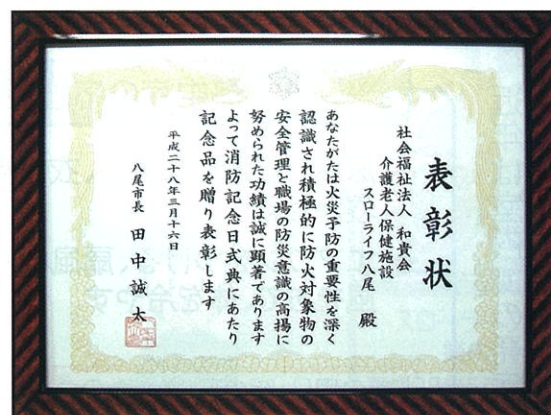 表彰状
社会福祉法人 和貴会
介護老人保健施設
スローライフ八尾 殿
あなたがたは火災予防の重要性を深く
認識され積極的に防火対象物の
安全管理と職場の防災意識の高揚に
努められた功績は誠に顕著であります
よって消防記念日式典にあたり
記念品を贈り表彰します
平成二十八年三月十六日
八尾市長 田中誠太